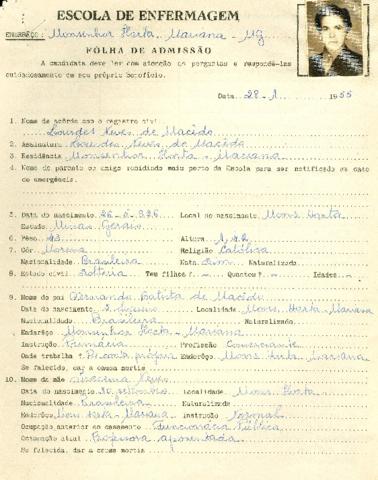 ESCOLA DE ENFERMAGEM
ENDERÊÇO: Monsenhor Horta, Mariana - MG
FÔLHA DE ADMISSÃO
A candidata deve ler com atenção as perguntas e respondê-las
cuidadosamente em seu próprio benefício.
Data 28-1 1955
1. Nome de acôrdo com o registro civil
Lourdes Neves de Macêdo
2. Assinatura Lourdes Neves de Macêdo
3. Residência Monsenhor Horta - Mariana
4. Nome de parente ou amigo residindo mais perto da Escola para ser notificado em caso
de emergência.
5. Data do nascimento Local do nascimento Mons. Horta
Estado Minas Gerais
6. Pêso 43 Altura
7. Côr Morena Religião Católica
Nacionalidade Brasileira Nata Sim Naturalizada
8. Estado civil Solteira Tem filhos? - Quantos? - Idades -
9. Nome do pai Fernando Batista de Macêdo
Data do nascimento Localidade Mons. Horta - Mariana
Nacionalidade Brasileira Naturalizado
Enderêço Monsenhor Horta - Mariana
Instrução Primária Profissão Comerciante
Onde trabalha? Enderêço Mons. Horta, Mariana
Se falecido, dar a causa mortis
10. Nome da mãe Neves
Data do nascimento Localidade Mons. Horta
Nacionalidade Brasileira Naturalizada
Enderêço Mons. Horta - Mariana Instrução Normal
Ocupação anterior ao casamento Funcionária Pública
Ocupação atual Professora aposentada
Se falecida, dar a causa mortis